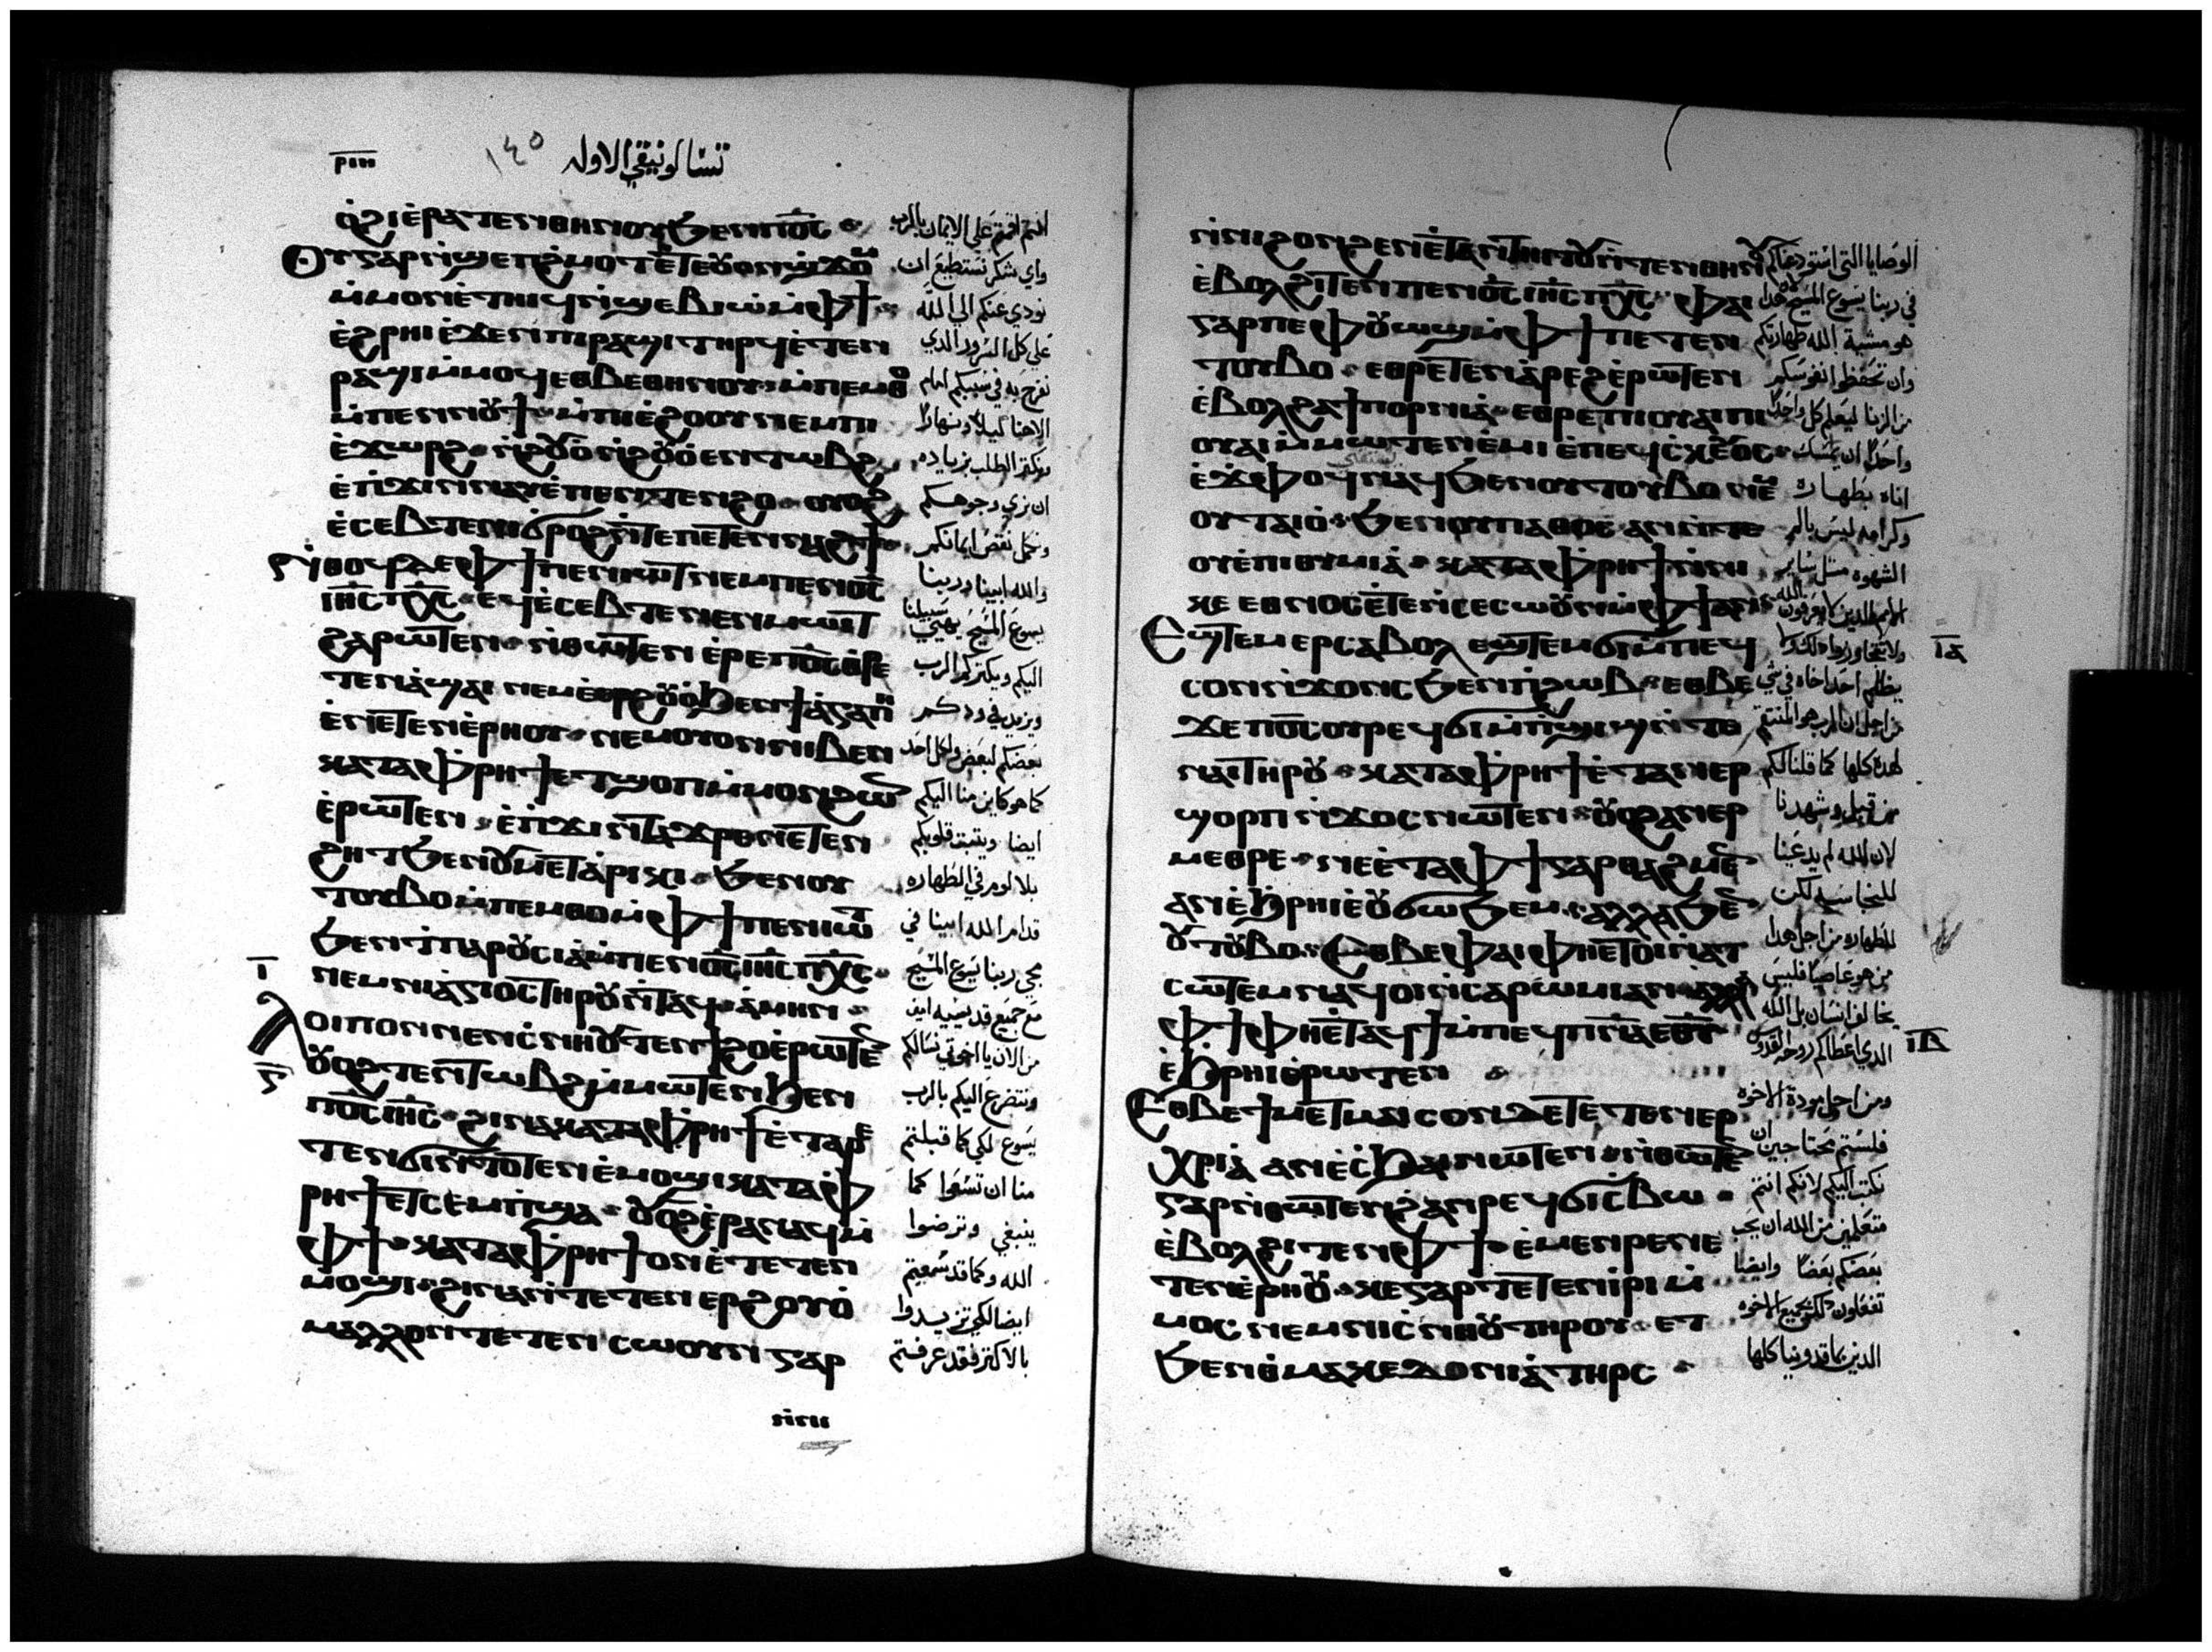 ⲣⲓⲏ
١٤٥
تسالونيقي الاوله
ⲟ̀ϩⲓ ⲉ̀ⲣⲁⲧⲉⲛ ⲑⲏⲛⲟⲩ ϧⲉⲛ ⲡⲟ̅ⲥ̅
ⲟⲩ ⲅⲁⲣ ⲛ̀ϣⲉⲡϩ̀ⲙⲟⲧ ⲉ̀ⲧⲉ ⲟⲩⲟⲛ ϣϫⲟⲙ
ⲙ̀ⲙⲟⲛ ⲉ̀ⲧⲏⲓϥ ⲛ̀ϣⲉⲃⲓⲱ ⲙ̀ⲫϯ
ⲉ̀ϩⲣⲏⲓ ⲉ̀ϫⲉⲛ ⲡⲓⲣⲁϣⲓ ⲧⲏⲣϥ ⲉ̀ⲧⲉⲛ
ⲣⲁϣⲓ ⲙ̀ⲙⲟϥ ⲉⲑⲃⲉ ⲑⲏⲛⲟⲩ ⲙ̀ⲡⲉⲙⲑⲟ
ⲙ̀ⲡⲉⲛⲛⲟⲩϯ ⲙ̀ⲡⲓⲉ̀ϩⲟⲟⲩ ⲛⲉⲙ ⲡⲓ
ⲉ̀ϫⲱⲣϩ ⲛ̀ϩⲟⲩⲟ̀ ⲛ̀ϩⲟⲩⲟ̀ ⲉⲛⲧⲱⲃϩ
ⲉ̀ⲡϫⲓⲛⲛⲁⲩ ⲉ̀ⲡⲉⲧⲉⲛϩⲟ ⲟⲩⲟϩ
ⲉ̀ⲥⲉⲃⲧⲉ ⲛⲓϭⲣⲟϩ ⲛ̀ⲧⲉ ⲡⲉⲧⲉⲛⲛⲁϩϯ
ⲛ̀ⲑⲟϥ ⲇⲉ ⲫϯ ⲡⲉⲛⲓⲱⲧ ⲛⲉⲙ ⲡⲉⲛⲟ̅ⲥ̅
ⲓⲏ̅ⲥ̅ ⲡⲭ̅ⲥ̅ ⲉϥⲉ̀ⲥⲉⲃⲧⲉ ⲡⲉⲛⲙⲱⲓⲧ
ϩⲁⲣⲱⲧⲉⲛ ⲛ̀ⲑⲱⲧⲉⲛ ⲉ̀ⲣⲉ ⲡⲟ̅ⲥ̅ ⲑⲣⲉ
ⲧⲉⲛⲁ̀ϣⲁⲓ ⲛⲉⲙ ⲉ̀ⲉⲣϩⲟⲩⲟ̀ ϧⲉⲛ ϯⲁ̀ⲅⲁⲡⲏ
ⲉ̀ⲛⲉⲧⲉⲛⲉ̀ⲣⲏⲟⲩ ⲛⲉⲙ ⲟⲩⲟⲛ ⲛⲓⲃⲉⲛ
ⲕⲁⲧⲁ ⲫⲣⲏϯ ⲉⲧϣⲟⲡ ⲙ̀ⲙⲟⲛ ϩⲱⲛ
ⲉ̀ⲣⲱⲧⲉⲛ ⲉ̀ⲡϫⲓⲛⲧⲁϫⲣⲉ ⲛⲉⲧⲉⲛ
ϩⲏⲧ ϧⲉⲛ ⲟⲩⲙⲉⲧⲁⲣⲓⲕⲓ ϧⲉⲛ ⲟⲩ
ⲧⲟⲩⲃⲟ ⲙ̀ⲡⲉⲙⲑⲟ ⲙ̀ⲫϯ ⲡⲉⲛⲓⲱⲧ
ϧⲉⲛ ⲧⲡⲁⲣⲟⲩⲥⲓⲁ̀ ⲙ̀ⲡⲉⲛⲟ̅ⲥ̅ ⲓⲏ̅ⲥ̅ ⲡⲭ̅ⲥ̅
ⲓ̅
ⲛⲉⲙ ⲛⲏⲁ̀ⲅⲓⲟⲥ ⲧⲏⲣⲟⲩ ⲛ̀ⲧⲁϥ ⲁ̀ⲙⲏⲛ
ⲗⲟⲓⲡⲟⲛ ⲛⲉⲛⲥ̀ⲛⲏⲟⲩ ⲧⲉⲛϯϩⲟ ⲉ̀ⲣⲱⲧⲉⲛ
ⲟⲩⲟϩ ⲧⲉⲛⲧⲱⲃϩ ⲙ̀ⲙⲱⲧⲉⲛ ϧⲉⲛ
ⲡⲟ̅ⲥ̅ ⲓⲏ̅ⲥ̅ ϩⲓⲛⲁ ⲕⲁⲧⲁ ⲫⲣⲏϯ ⲉ̀ⲧⲁⲣⲉ
ⲧⲉⲛϭⲓ ⲛ̀ⲧⲟⲧⲉⲛ ⲉ̀ⲙⲟϣⲓ ⲕⲁⲧⲁ ⲫ
ⲣⲏϯ ⲉⲧⲥⲉⲙⲡϣⲁ ⲟⲩⲟϩ ⲉ̀ⲣⲁⲛⲁϥ ⲙ̀
ⲫϯ ⲕⲁⲧⲁ ⲫⲣⲏϯ ⲟⲛ ⲉ̀ⲧⲉⲧⲉⲛ
ⲙⲟϣⲓ ϩⲓⲛⲁ ⲛ̀ⲧⲉⲧⲉⲛⲉⲣϩⲟⲩⲟ̀
ⲙⲁⲗⲗⲟⲛ ⲧⲉⲧⲉⲛⲥⲱⲟⲩⲛ ⲅⲁⲣ
انتم اقمتم علي الايمان بالرب
واي شكر نستطيع ان
نودي عنكم الي الله
علي كل السرور الدي
نفرح به في سببكم امام
الاهنا ليلا ونهارا
ونكتر الطلب بزياده
ان نري وجوهكم
ونكمل نقص ايمانكم
والله ابينا وربنا
يسوع المسيح يهيي سبيلنا
اليكم ويكتركم الرب
ويزيد في ودكم
بعضكم لبعض ولكل احد
كما هو كاين منا اليكم
ايضا ويتبت قلوبكم
بلا لوم في الطهاره
قدام الله ابينا في
مجي ربنا يسوع المسيح
مع جميع قديسيه امين
من الان يا اخوتي نسالكم
ونتضرع اليكم بالرب
يسوع لكي كما قبلتم
منا ان تسعوا كما
ينبغي وترضوا
الله وكما قد سعيتم
ايضا لكي تزيدوا
بالاكتر فقد عرفتم
ⲛ̀ⲛⲓ
ⲛ̀ⲛⲓϩⲟⲛϩⲉⲛ ⲉ̀ⲧⲁⲛⲧⲏⲓⲧⲟⲩ ⲛ̀ⲧⲉⲛ ⲑⲏⲛⲟⲩ
ⲉ̀ⲃⲟⲗϩⲓⲧⲉⲛ ⲡⲉⲛⲟ̅ⲥ̅ ⲓⲏ̅ⲥ̅ ⲡⲭ̅ⲥ̅ ⲫⲁⲓ
ⲅⲁⲣ ⲡⲉ ⲫⲟⲩⲱϣ ⲙ̀ⲫϯ ⲡⲉⲧⲉⲛ
ⲧⲟⲩⲃⲟ ⲉⲑⲣⲉⲧⲉⲛⲁ̀ⲣⲉϩ ⲉ̀ⲣⲱⲧⲉⲛ
ⲉ̀ⲃⲟⲗϩⲁ ϯⲡⲟⲣⲛⲓⲁ̀ ⲉⲑⲣⲉ ⲡⲓⲟⲩⲁⲓ ⲡⲓ
ⲟⲩⲁⲓ ⲙ̀ⲙⲱⲧⲉⲛ ⲉ̀ⲙⲓ ⲉ̀ⲡⲉϥⲥ̀ⲕⲉⲩⲟⲥ
ⲉ̀ϫ̀ⲫⲟϥ ⲛⲁϥ ϧⲉⲛ ⲟⲩⲧⲟⲩⲃⲟ ⲛⲉⲙ
ⲟⲩⲧⲁⲓⲟ̀ ϧⲉⲛ ⲟⲩⲡⲁⲑⲟⲥ ⲁⲛ ⲛ̀ⲧⲉ
ⲟⲩⲉ̀ⲡⲓⲑⲩⲙⲓⲁ̀ ⲕⲁⲧⲁ ⲫⲣⲏϯ ⲛ̀ⲛⲓ
ⲕⲉ ⲉⲑⲛⲟⲥ ⲉ̀ⲧⲉ ⲛ̀ⲥⲉⲥⲱⲟⲩⲛ ⲙ̀ⲫϯ ⲁⲛ
ⲉϣⲧⲉⲙⲉⲣⲥⲁⲃⲟⲗ ⲉϣⲧⲉⲙϭⲓ ⲙ̀ⲡⲉϥ
ⲓ̅ⲁ̅
ⲥⲟⲛ ⲛ̀ϫⲟⲛⲥ ϧⲉⲛ ⲡⲓϩⲱⲃ ⲉⲑⲃⲉ
ϫⲉ ⲡⲟ̅ⲥ̅ ⲟⲩⲣⲉϥϭⲓ ⲙ̀ⲡϣⲓϣ ⲛ̀ⲧⲉ
ⲛⲁⲓ ⲧⲏⲣⲟⲩ ⲕⲁⲧⲁ ⲫⲣⲏϯ ⲉ̀ⲧⲁⲛⲉⲣ
ϣⲟⲣⲡ ⲛ̀ϫⲟⲥ ⲛⲱⲧⲉⲛ ⲟⲩⲟϩ ⲁⲛⲉⲣ
ⲙⲉⲑⲣⲉ ⲛⲉⲉ̀ⲧⲁ ⲫϯ ⲅⲁⲣ ⲑⲁϩⲙⲉⲛ
ⲁⲛ ⲉ̀ϧⲣⲏⲓ ⲉ̀ⲟⲩϭⲱϧⲉⲙ ⲁⲗⲗⲁ ϧⲉⲛ
ⲟⲩⲧⲟⲩⲃⲟ ⲉⲑⲃⲉ ⲫⲁⲓ ⲫⲏⲉⲧⲟⲓ ⲛ̀ⲁⲧ
ⲥⲱⲧⲉⲙ ⲛⲁϥⲟⲓ ⲛ̀ⲥⲁ ⲣⲱⲙⲓ ⲁⲛ ⲁⲗⲗⲁ
ⲫϯ ⲫⲏⲉ̀ⲧⲁϥϯ ⲙ̀ⲡⲉϥⲡ̅ⲛ̅ⲁ̅ ⲉⲑⲩ
ⲓ̅ⲃ̅
ⲉ̀ϧⲣⲏⲓ ⲉ̀ⲣⲱⲧⲉⲛ
ⲉⲑⲃⲉ ϯⲙⲉⲧⲙⲁⲓⲥⲟⲛ ⲇⲉ ⲧⲉⲧⲉⲛⲉⲣ
ⲭⲣⲓⲁ̀ ⲁⲛ ⲉ̀ⲥ̀ϧⲁⲓ ⲛⲱⲧⲉⲛ ⲛ̀ⲑⲱⲧⲉⲛ
ⲅⲁⲣ ⲛ̀ⲑⲱⲧⲉⲛ ϩⲁⲛⲣⲉϥϭⲓⲥⲃⲱ
ⲉ̀ⲃⲟⲗϩⲓⲧⲉⲛ ⲫϯ ⲉ̀ⲙⲉⲛⲣⲉ ⲛⲉ
ⲧⲉⲛⲉ̀ⲣⲏⲟⲩ ⲕⲉ ⲅⲁⲣ ⲧⲉⲧⲉⲛⲓ̀ⲣⲓ ⲙ̀
ⲙⲟⲥ ⲛⲉⲙ ⲛⲓⲥ̀ⲛⲏⲟⲩ ⲧⲏⲣⲟⲩ ⲉⲧ
ϧⲉⲛ ⲑⲙⲁⲕⲉⲇⲟⲛⲓⲁ̀ ⲧⲏⲣⲥ
الوصايا التي استودعناكم
في ربنا يسوع المسيح هدا
هو مشية الله طهارتكم
وان تحفظوا نفوسكم
من الزنا ليعلم كل واحد
واحد ان يمسك
اناه بطهاره
وكرامه ليس بالم
الشهوه متل ساير
الامم الدين لا يعرفون الله
ولا تتجاوزوا دلك ولا
يظلم احد اخاه في شي
من اجل ان الرب هو المنتقم
لهده كلها كما قلنا لكم
من قبل وشهدنا
لان الله لم يدعينا
للنجاسه لكن
للطهاره من اجل هدا
من هو عاصيا فليس
يخالف انسان بل الله
الدي اعطاكم روحه القدوس
ومن اجل مودة الاخوه
فلستم محتاجين ان
نكتب اليكم لانكم انتم
متعلمين من الله ان يحب
بعضكم بعضا وايضا
تفعلون دلك بجميع الاخوه
الدين بماقدونيا كلها